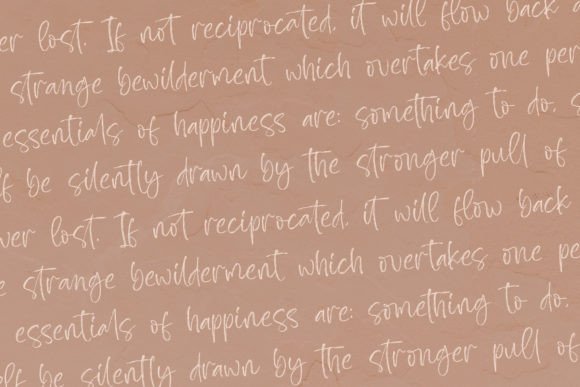 ver lost. If not reciprocated, it will flow back a
strange bewilderment which overtakes one per
essentials of happiness are: something to do, s
lf be silently drawn by the stronger pull of
ver lost. If not reciprocated, it will flow back
e strange bewilderment which overtakes one pe
essentials of happiness are: something to do,
elf be silently drawn by the stronger pull of